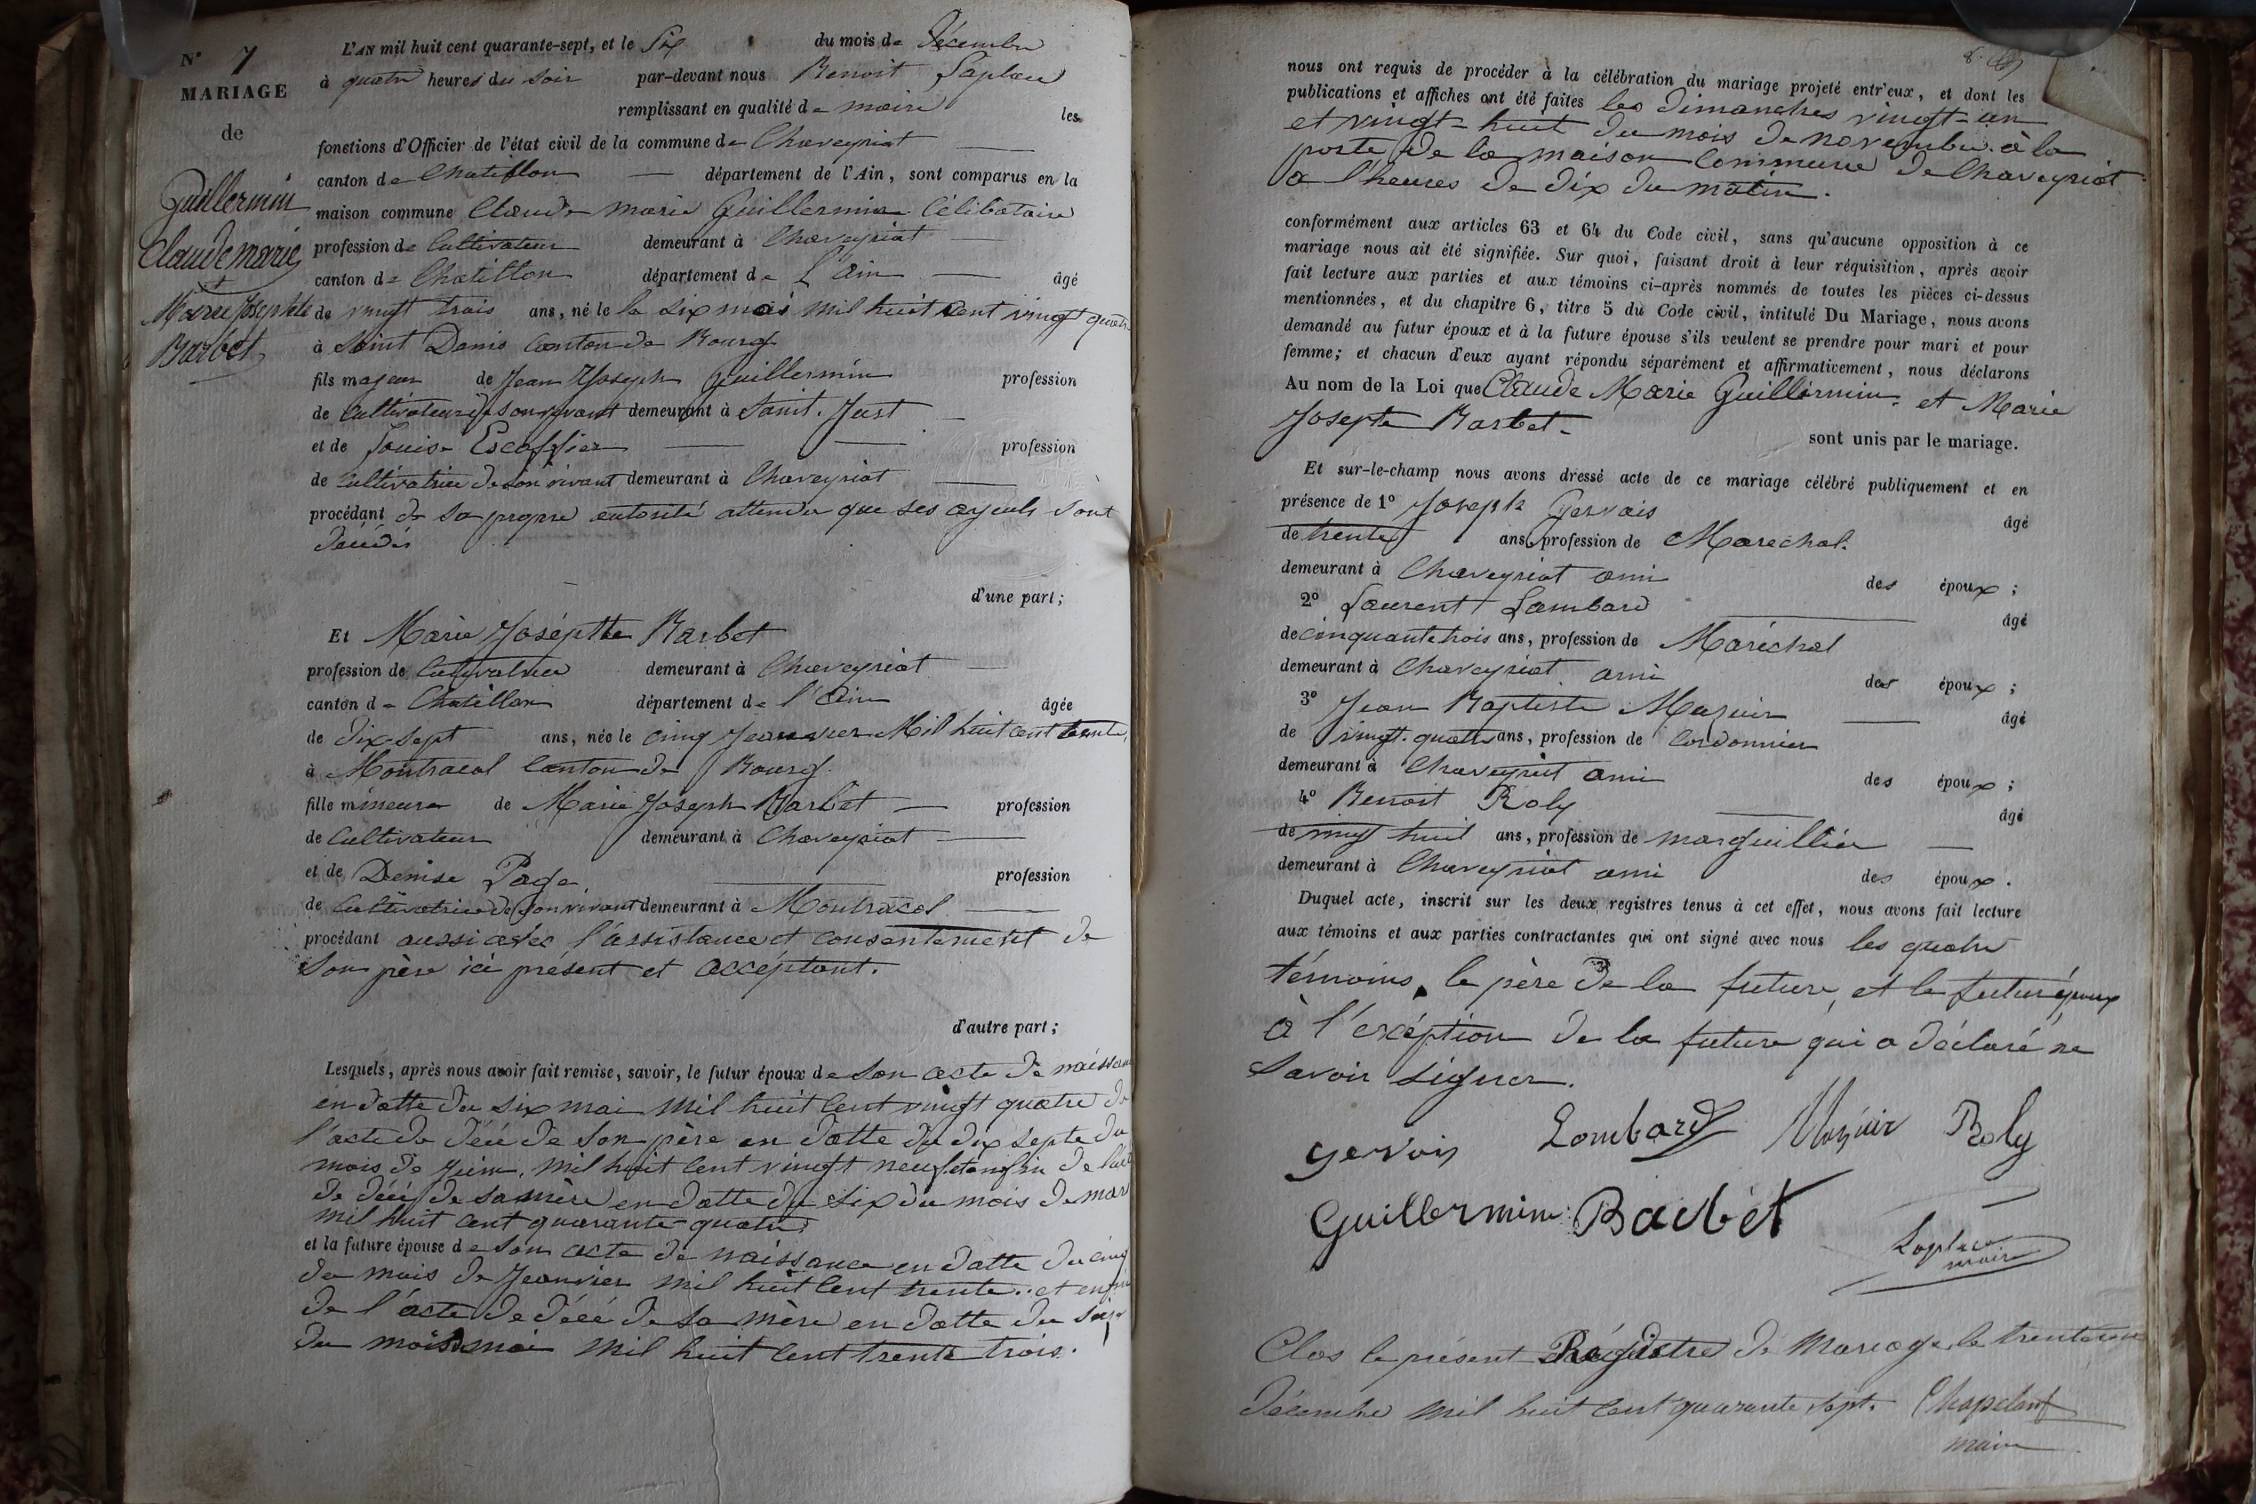 N° 7
MARIAGE
de
Guillermin
Claude marie
et
Marie Josephte
Barbet
L'AN mil huit cent quarante-sept, et le Six du mois de Décembre
à quatre heures du soir par-devant nous Benoit Laplace
remplissant en qualité de maire les
fonctions d'Officier de l'état civil de la commune de Chaveyriat
canton de Chatillon département de l'Ain, sont comparus en la
maison commune Claude marie Guillermin Célibataire
profession de Cultivateur demeurant à Chaveyriat
canton de Chatillon département de L'Ain âgé
de vingt trois ans, né le le six mai mil huit cent vingt quatre
à Saint Denis Canton de Bourg
fils majeur de Jean Joseph Guillermin profession
de Cultivateur de son vivant demeurant à Saint. Just
et de Louise Escoffier profession
de Cultivatrice de son vivant demeurant à Chaveyriat
procédant de sa propre autorité attendu que ses ayeuls sont
décédés
d'une part;
Et Marie Joséphte Barbet
profession de Cultivatrice demeurant à Chaveyriat
canton de Chatillon département de l'Ain âgée
de dix-sept ans, née le cinq Jeanvier Mil huit cent trente,
à Montracol Canton de Bourg
fille mineure de Marie Joseph Barbet profession
de Cultivateur demeurant à Chaveyriat
et de Denise Page profession
de Cultivatrice de son vivant demeurant à Montracol
procédant aussi avec l'assistance et consentement de
Son père ici présent et accéptant.
d'autre part;
Lesquels, après nous avoir fait remise, savoir, le futur époux de son acte de naissance
en datte du six mai mil huit cent vingt quatre de
l'acte de décé de son père en datte du dix septe du
mois de juin, mil huit cent vingt neuf et enfin de l'acte
de décé de sa mère en datte du six du mois de mar
mil huit cent quarante quatre
et la future épouse de son acte de naissance en datte du cinq
du mois de Jeanvier mil huit cent trente.. et enfin
de l'acte de décé de sa mère en datte du
du mois mai mil huit cent trente trois.
nous ont requis de procéder à la célébration du mariage projeté entr'eux, et dont les
publications et affiches ont été faites les dimanches vingt-un
et vingt-huit du mois de novembre à la
porte de la maison Commune de Chaveyriat
a l'heures de dix du matin.
conformément aux articles 63 et 64 du Code civil, sans qu'aucune opposition à ce
mariage nous ait été signifiée. Sur quoi, faisant droit à leur réquisition, après avoir
fait lecture aux parties et aux témoins ci-après nommés de toutes les pièces ci-dessus
mentionnées, et du chapitre 6, titre 5 du Code civil, intitulé Du Mariage, nous avons
demandé au futur époux et à la future épouse s'ils veulent se prendre pour mari et pour
femme; et chacun d'eux ayant répondu séparément et affirmativement, nous déclarons
Au nom de la Loi que Claude Marie Guillermin et Marie
Josepte Barbet
sont unis par le mariage.
Et sur-le-champ nous avons dressé acte de ce mariage célébré publiquement et en
présence de 1° Joseph Gervais âgé
de trente ans, profession de Maréchal.
demeurant à Chaveyriat ami des époux;
2° Laurent Lambard âgé
de cinquante trois ans, profession de Maréchal
demeurant à Chaveyriat ami des époux;
3° Jean Baptiste Mazuir âgé
de vingt-quatre ans, profession de Cordonnier
demeurant à Chaveyriat ami des époux;
4° Benoit Roly âgé
de vingt huit ans, profession de marguillier
demeurant à Chaveyriat ami des époux.
Duquel acte, inscrit sur les deux registres tenus à cet effet, nous avons fait lecture
aux témoins et aux parties contractantes qui ont signé avec nous les quatre
témoins, le père de la future, et le futur époux
à l'excéption de la future qui a déclaré ne
savoir signer.
Gervais Lombard Mazuir Roly
Guillermin Barbet
Laplace
maire
Clos le présent Régistre de Mariage le trente un
Décembre mil huit cent quarante sept.
maire